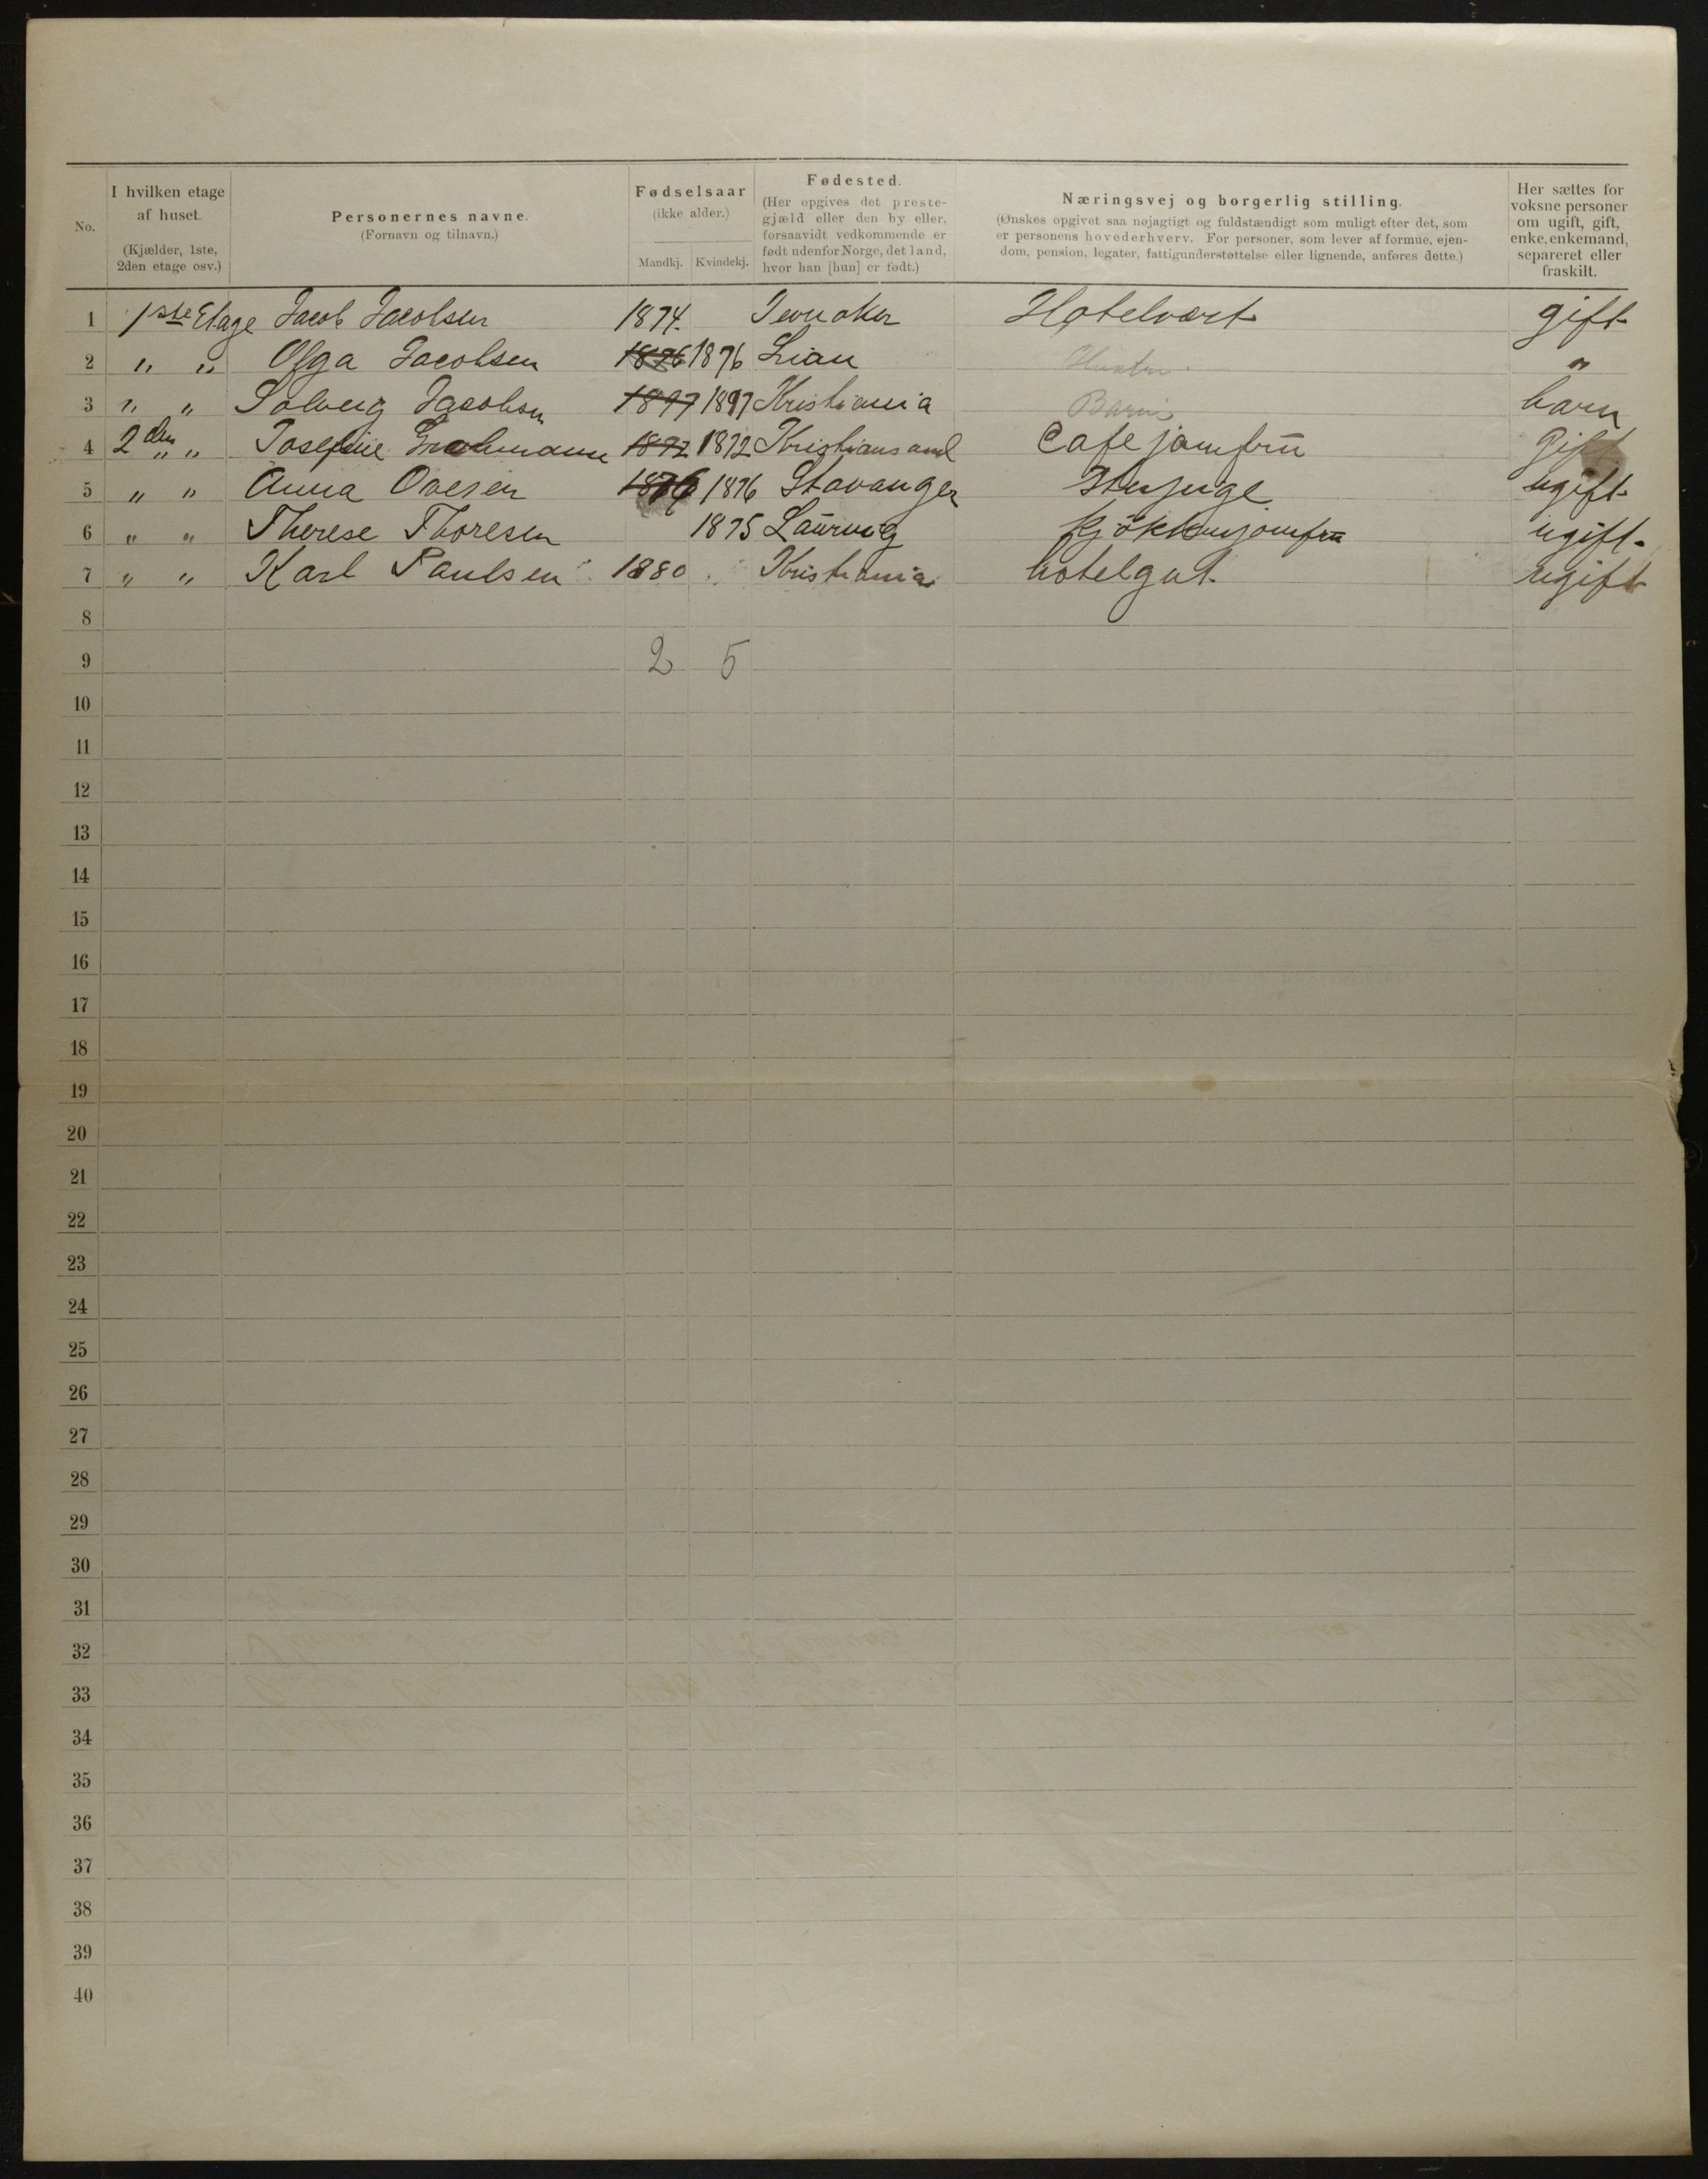 No.
I hvilken etage af huset.
(Kjælder, 1ste, 2den etage osv.)
Personernes navne.
(Fornavn og tilnavn.)
Fødselsaar
(ikke alder.)
Mandkj. Kvindekj.
Fødested.
(Her opgives det preste-
gjæld eller den by eller,
forsaavidt vedkommende er
født udenfor Norge, det land,
hvor han [hun] er født.)
Næringsvej og borgerlig stilling.
(Ønskes opgivet saa nøjagtigt og fuldstændigt som muligt efter det, som
er personens hovederhverv. For personer, som lever af formue, ejen-
dom, pension, legater, fattigunderstøttelse eller lignende, anføres dette.)
Her sættes for
voksne personer
om ugift, gift,
enke, enkemand,
separeret eller
fraskilt.
1 1ste Etage Jacob Jacobsen 1874. Jevnaker Hotelvært gift
2 " " Olga Jacobsen 1876 1876 Lian Hustru "
3 " " Solveig Jacobsen 1897 1897 Kristiania Barn barn
4 2den " " Josefine 1872 1872 Kristiansand Cafejomfru Gift
5 " " Anna Ovesen 1876 1876 Stavanger ugift
6 " " Therese Thoresen 1875 Laurvig Kjøkkenjomfru ugift
7 " " Karl Paulsen 1880 Kristiania hotelgut. ugift
8
9 2 5
10
11
12
13
14
15
16
17
18
19
20
21
22
23
24
25
26
27
28
29
30
31
32
33
34
35
36
37
38
39
40